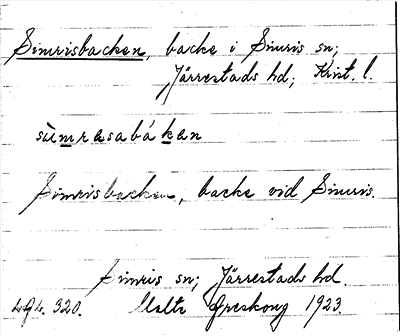 Simrisbacken, backe i Simris sn;
Järrestads hd; Krist. l.
sìmresabákan
Simrisbacken, backe vid Simris.
Simris sn; Järrestads hd.
320. Malte Areskoug 1923.